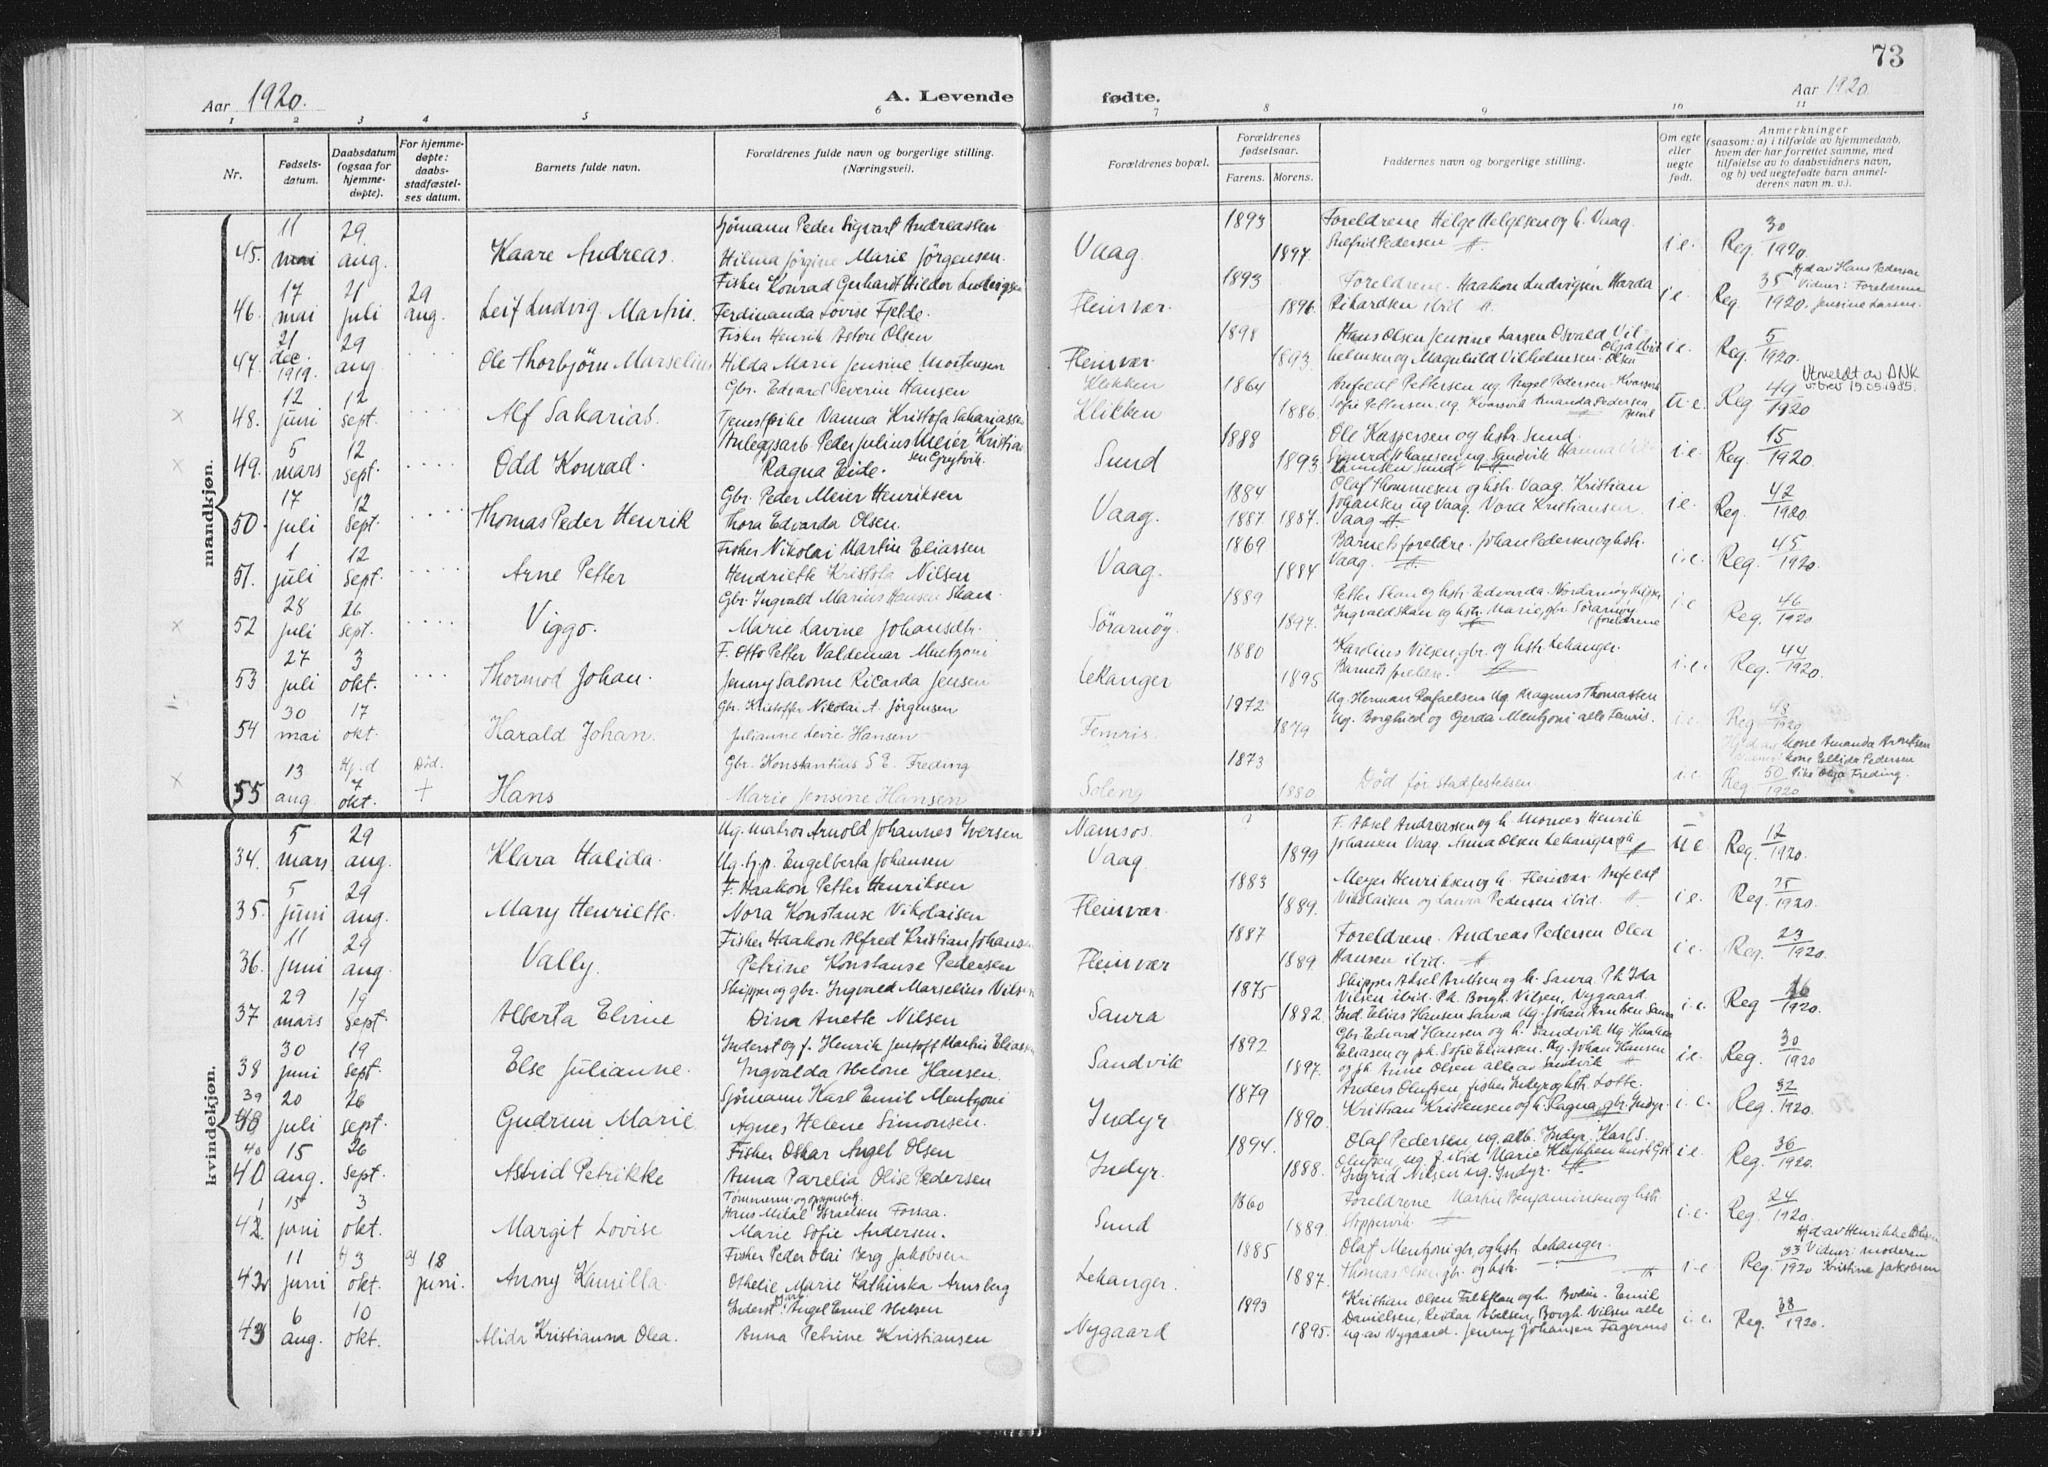 73
Aar 1920.
A. Levende
fødte.
Aar 1920
1 2 3 4 5 6 7 8 9 10 11
Nr.
Fødsels-
datum.
Daabsdatum
(ogsaa for
hjemme-
døpte).
For hjemme-
døpte:
daabs-
stadfæstel-
ses datum.
Barnets fulde navn.
Forældrenes fulde navn og borgerlige stilling.
(Næringsvei).
Forældrenes bopæl.
Forældrenes
fødselsaar.
Farens. Morens.
Faddernes navn og borgerlige stilling.
Om egte
eller
uegte
født.
Anmerkninger
(saasom: a) i tilfælde av hjemmedaab,
hvem der har forrettet samme, med
tilføielse av to daabsvidners navn,
og b) ved uegtefødte barn anmel-
derens navn m. v.).
mandkjøn.
11 29 Sjømann Peder Sigvart Andreassen 1893 Foreldrene Helge Helgesen og h. Vaag 30
45. mai aug. Kaare Andreas. Hilma Jørgine Marie Jørgensen. Vaag. 1897. Pedersen i.e. Reg. 1920.
17 21 29 Fisher Konrad Gerhardt Hilder Ludvigsen 1893 Foreldrene. Haakon Ludvigsen Harda 35 Hjd av Hans Pedersen
46. mai juli aug. Leif Ludvig Martin. Ferdinanda Lovise Fjelde. Fleinvær. 1896. Rikardsen ibid i e. Reg. 1920. Vidner: Foreldrene Jensine Larsen.
21 29 Fisher Henrik Astore Olsen 1898 Hans Olsen Jensine Larsen Osvald Vil- 5
47. dec. 1919. aug Ole Thorbjørn Marselius Hilda Marie Jensine Mortensen Fleinvær. 1893. helmsen og Magnhild Vilhelmsen. Olsen i e. Reg. 1920.
12 12 Gbr. Edvard Severin Hansen Klikken 1864 Anfeldt Pettersen ug. Angel Pedersen Kvarsvik 49 Utmeldt av DNK
48. juni sept. Alf Sakarias. Tjenestpike Vanna Kristofa Sakariassen Klikken 1886. Sofie Pettersen, ug. Kvarsvik Amanda Pedersen u.e. Reg 1920 v. brev 19.03.1985.
5 12 Anleggsarb Peder Julius Meier Kristian 1888 Ole Kaspersen og hstr. Sund. 15
49. mars sept. Odd Konrad. sen Grytvik. Ragna Eide. Sund 1893 Sigurd Johansen ug. Sandvik Hanna i.e. Reg. 1920.
17 12 Gbr. Peder Meier Henriksen 1884 Olaf Thommesen og hstr. Vaag. Kristian 42
50. juli sept. Thomas Peder Henrik Thora Edvarda Olsen. Vaag. 1887. 1887. Johansen ug Vaag. Nora Kristiansen Vaag i e. Reg. 1920.
1 12 Fisher Nikolai Martin Eliassen 1869 Barnets foreldre. Johan Pedersen og hstr. 45
51. juli sept. Arne Petter Hendriette Kristofa Nilsen Vaag. 1884 Vaag. i.e. Reg. 1920.
28 26 Gbr. Ingvald Marius Hansen Skau. 1889 Petter Skau og hstr Edvarda. Nordarnøy, 46
52 juli sept. Viggo. Marie Lavine Johansdtr. Sörarnøy. 1897. Ingvald Skau og hstr. Marie, gbr. Sørarnøy, foreldrene i e Reg. 1920
27 3 F. Otto Petter Valdemar Mentzoni 1880 Karolius Nilsen, gbr. og hstr. Lekanger. 44
53 juli okt. Thormod Johan. Jenny Salome Ricarda Jensen Lekanger 1895 Barnets foreldre. i.e. Reg. 1920.
30 17 Gbr. Kristoffer Nikolai A. Jørgensen 1872 Ug. Herman Rafaelsen Ug. Magnus Thomassen 48
54 mai okt. Harald Johan. Julianne Levie Hansen Femris. 1879 Ug. Borghild og Gerda Mentzoni alle Femris. i.e. Reg 1920
13 Hj.d Død. Gbr. Konstantius S E. Freding 1873 Hj.d av kone Amanda Arntsen kone Ellida Pedersen
55 aug 7 okt. + Hans Marie Jensine Hansen Soleng 1880 Død før stadfestelsen. i e Reg 50 1920 Pike Olga Freding.
kvindekjøn.
5 29 Ug. matros Arnold Johannes Iversen Namsos. ? F. Aksel Andreassen og h. Mornes Henrik 12
34. mars aug. Klara Halida. Ug. tj.p. Engelberta Johansen Vaag. 1899 Johansen Vaag. Anna Olsen Lekanger u e. Reg. 1920.
5 29 F. Haakon Petter Henriksen 1883 Meyer Henriksen og h. Fleinvær. Anfeldt 25
35. juni aug. Mary Henriette. Nora Konstanse Nikolaisen Fleinvær. 1889. Nikolaisen og Laura Pedersen ibid. i e. Reg. 1920.
11 29 Fisher Haakon Alfred Kristian Johansen 1887 Foreldrene. Andreas Pedersen Olea 23
36. juni aug. Vally. Petrine Konstanse Pedersen Fleinvær 1889. Hansen ibid. i e. Reg. 1920.
29 19 Skipper og gbr. Ingvald Marselius Nilsen 1875 Skipper Aksel Arntsen og h. Saura. Pk Ida 26
37 mars sept. Alberta Elvine Dina Anette Nilsen Saura 1882. Nilsen ibid. Pk. Borgh. Nilsen, Nygaard Ind. Elias Hansen Saura Ug. Johan Arntsen Saura i.e. Reg 1920.
30 19 Inderst og f. Henrik Jentoft Martin Eliassen 1892 Gbr Edvard Hansen og h. Sandvik Ug Haakon 30
38 juni sept. Else Julianne. Ingvalda Helene Hansen. Sandvik 1897. Eliasen og pk. Sofie Eliassen. Ug. Johan Hansen og pk Anne Olsen alle av Sandvik i.e. Reg. 1920
39 20 26 Sjømann Karl Emil Mentzoni 1879 Anders Olufsen, fisher Indyr og hstr. Lotte. 32
40 juli sept. Gudrun Marie Agnes Helene Simonsen. Indyr 1890. Kristian Kristensen og h. Ragna, gbr. Indyr. i.e. Reg. 1920.
40 15 26 Fisher Oskar Angel Olsen 1894. Olaf Pedersen, ug. arb. Indyr. Karl S. 36
40 aug. sept. Astrid Petrikke Anna Parelia Olise Pedersen Indyr. 1888. Olufsen, ug. f. ibid Marie Ingrid Nilsen ug. Indyr. i e. Reg. 1920.
1 15 3 Tømmerm. og opsynsbetj. 1860 Foreldrene Martin Benjaminsen og hstr. 24
42. juni okt. Margit Lovise Hans Mikal Israelsen Forsaa. Marie Sofie Andersen. Sund 1889. Stoppervik. i.e. Reg. 1920.
11 3 18 Fisher Peder Olai Berg Jakobsen 1885 Olaf Mentzoni gbr. og hstr. Lekanger. Hjd av Henrikke Olsen
42 juni okt. juni. Anny Kamilla. Othelie Marie Kathinka Arnsberg Lekanger. 1887. Thomas Olsen gbr. og hstr. i e Reg. 33 1920 Vidner: moderen Kristine Jakobsen
6 10 Inderst, Gbr. Angel Emil Nilsen 1893 Kristian Olsen Falkflau og h. Bodin. Emil 38
43 aug. okt. Alida Kristianna Olea. Anna Petrine Kristiansen Nygaard 1895. Danielsen, Reidar Nilsen, Borgh. Nilsen alle ug av Nygaard. Jenny Johansen Fagernes i.e. Reg. 1920.